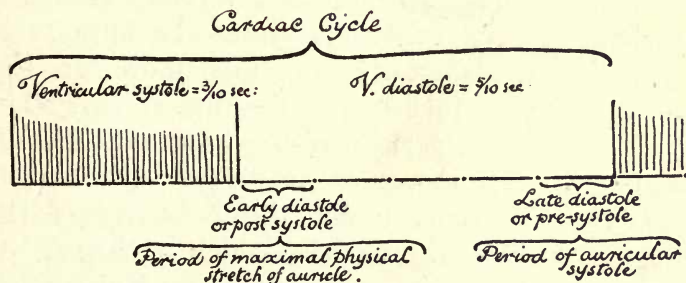 Cardiac Cycle
Ventricular systole = 3/10 sec:
V. diastole = 5/10 sec
Early diastole
or post systole
Late diastole
or pre-systole
Period of maximal physical
stretch of auricle.
Period of auricular
systole